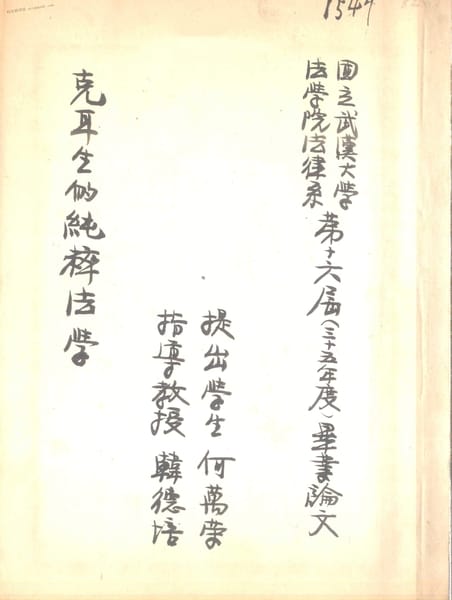 1544
國立武漢大學
法學院法律系
第十六屆（三十五年度）畢業論文
提出學生 何萬榮
指導教授 韓德培
克耳生的純粹法學